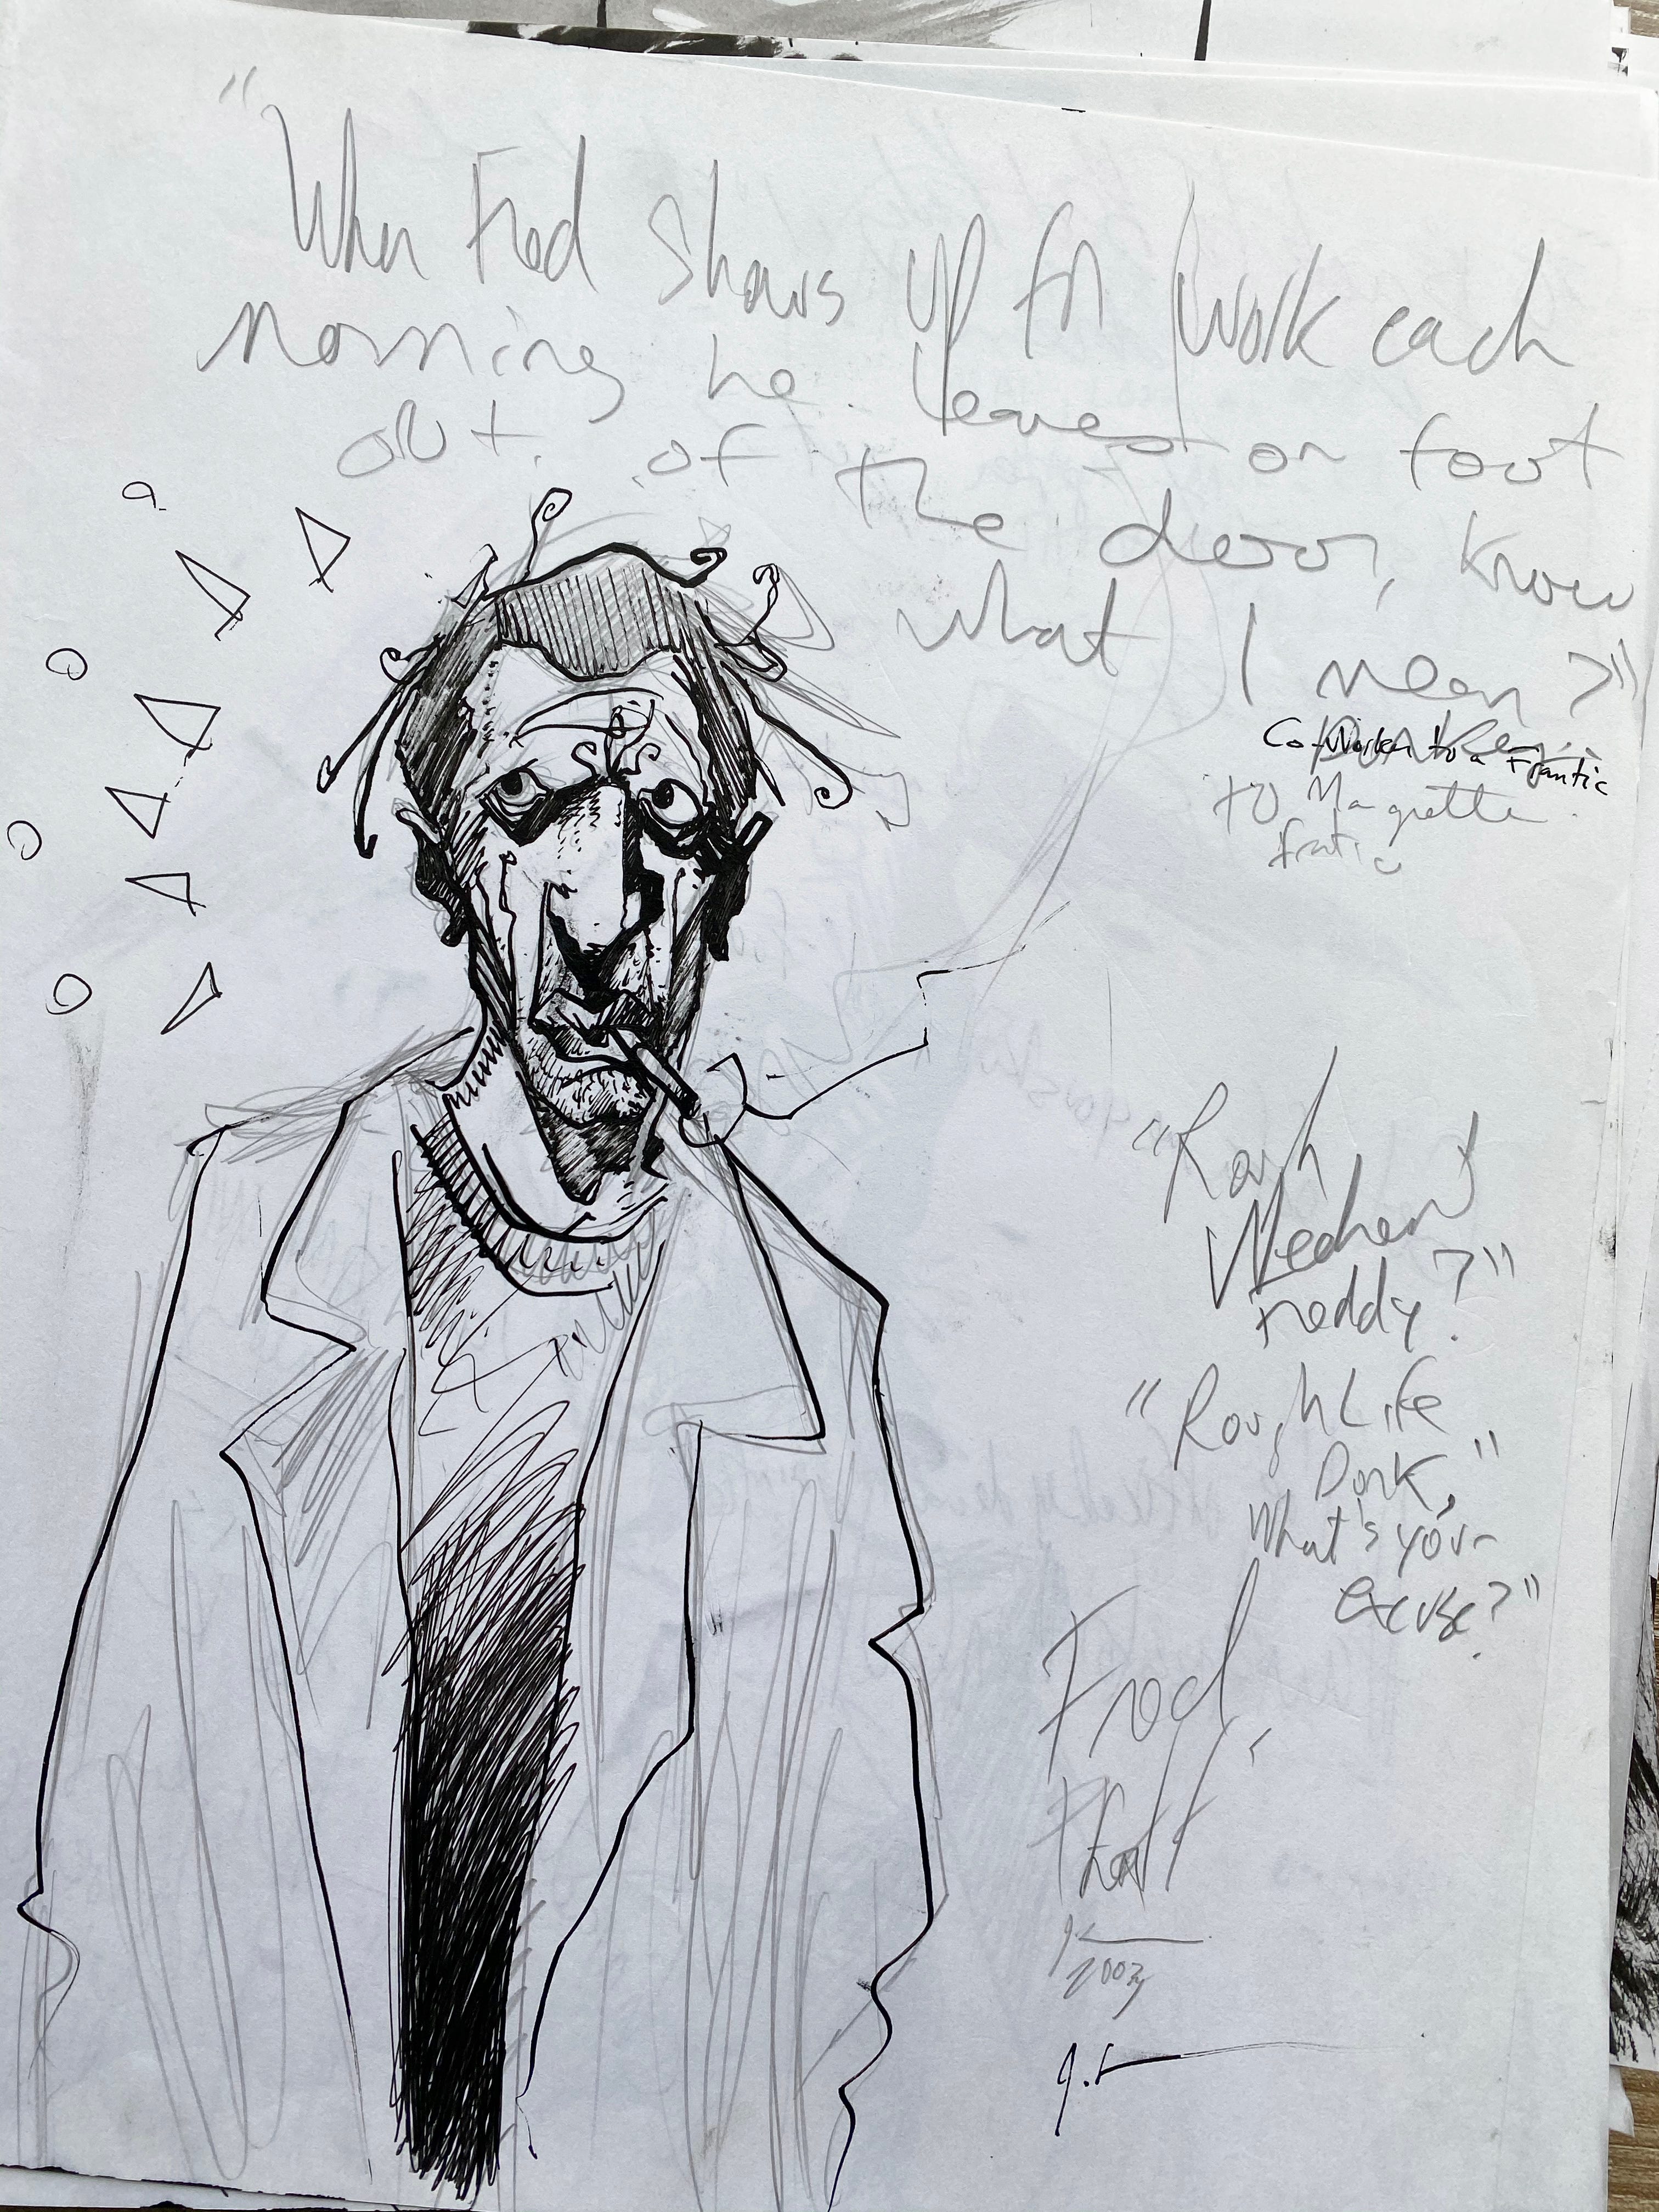 "When Fred Shows up for work each
morning he leaves on foot
out of the door, know
what I mean?"
Co-Worker to a Frantic
to Maquette
"Rough
Weekend
Freddy?"
"Rough Life
Dork,"
What's your
excuse?"
Fred
2003
J.